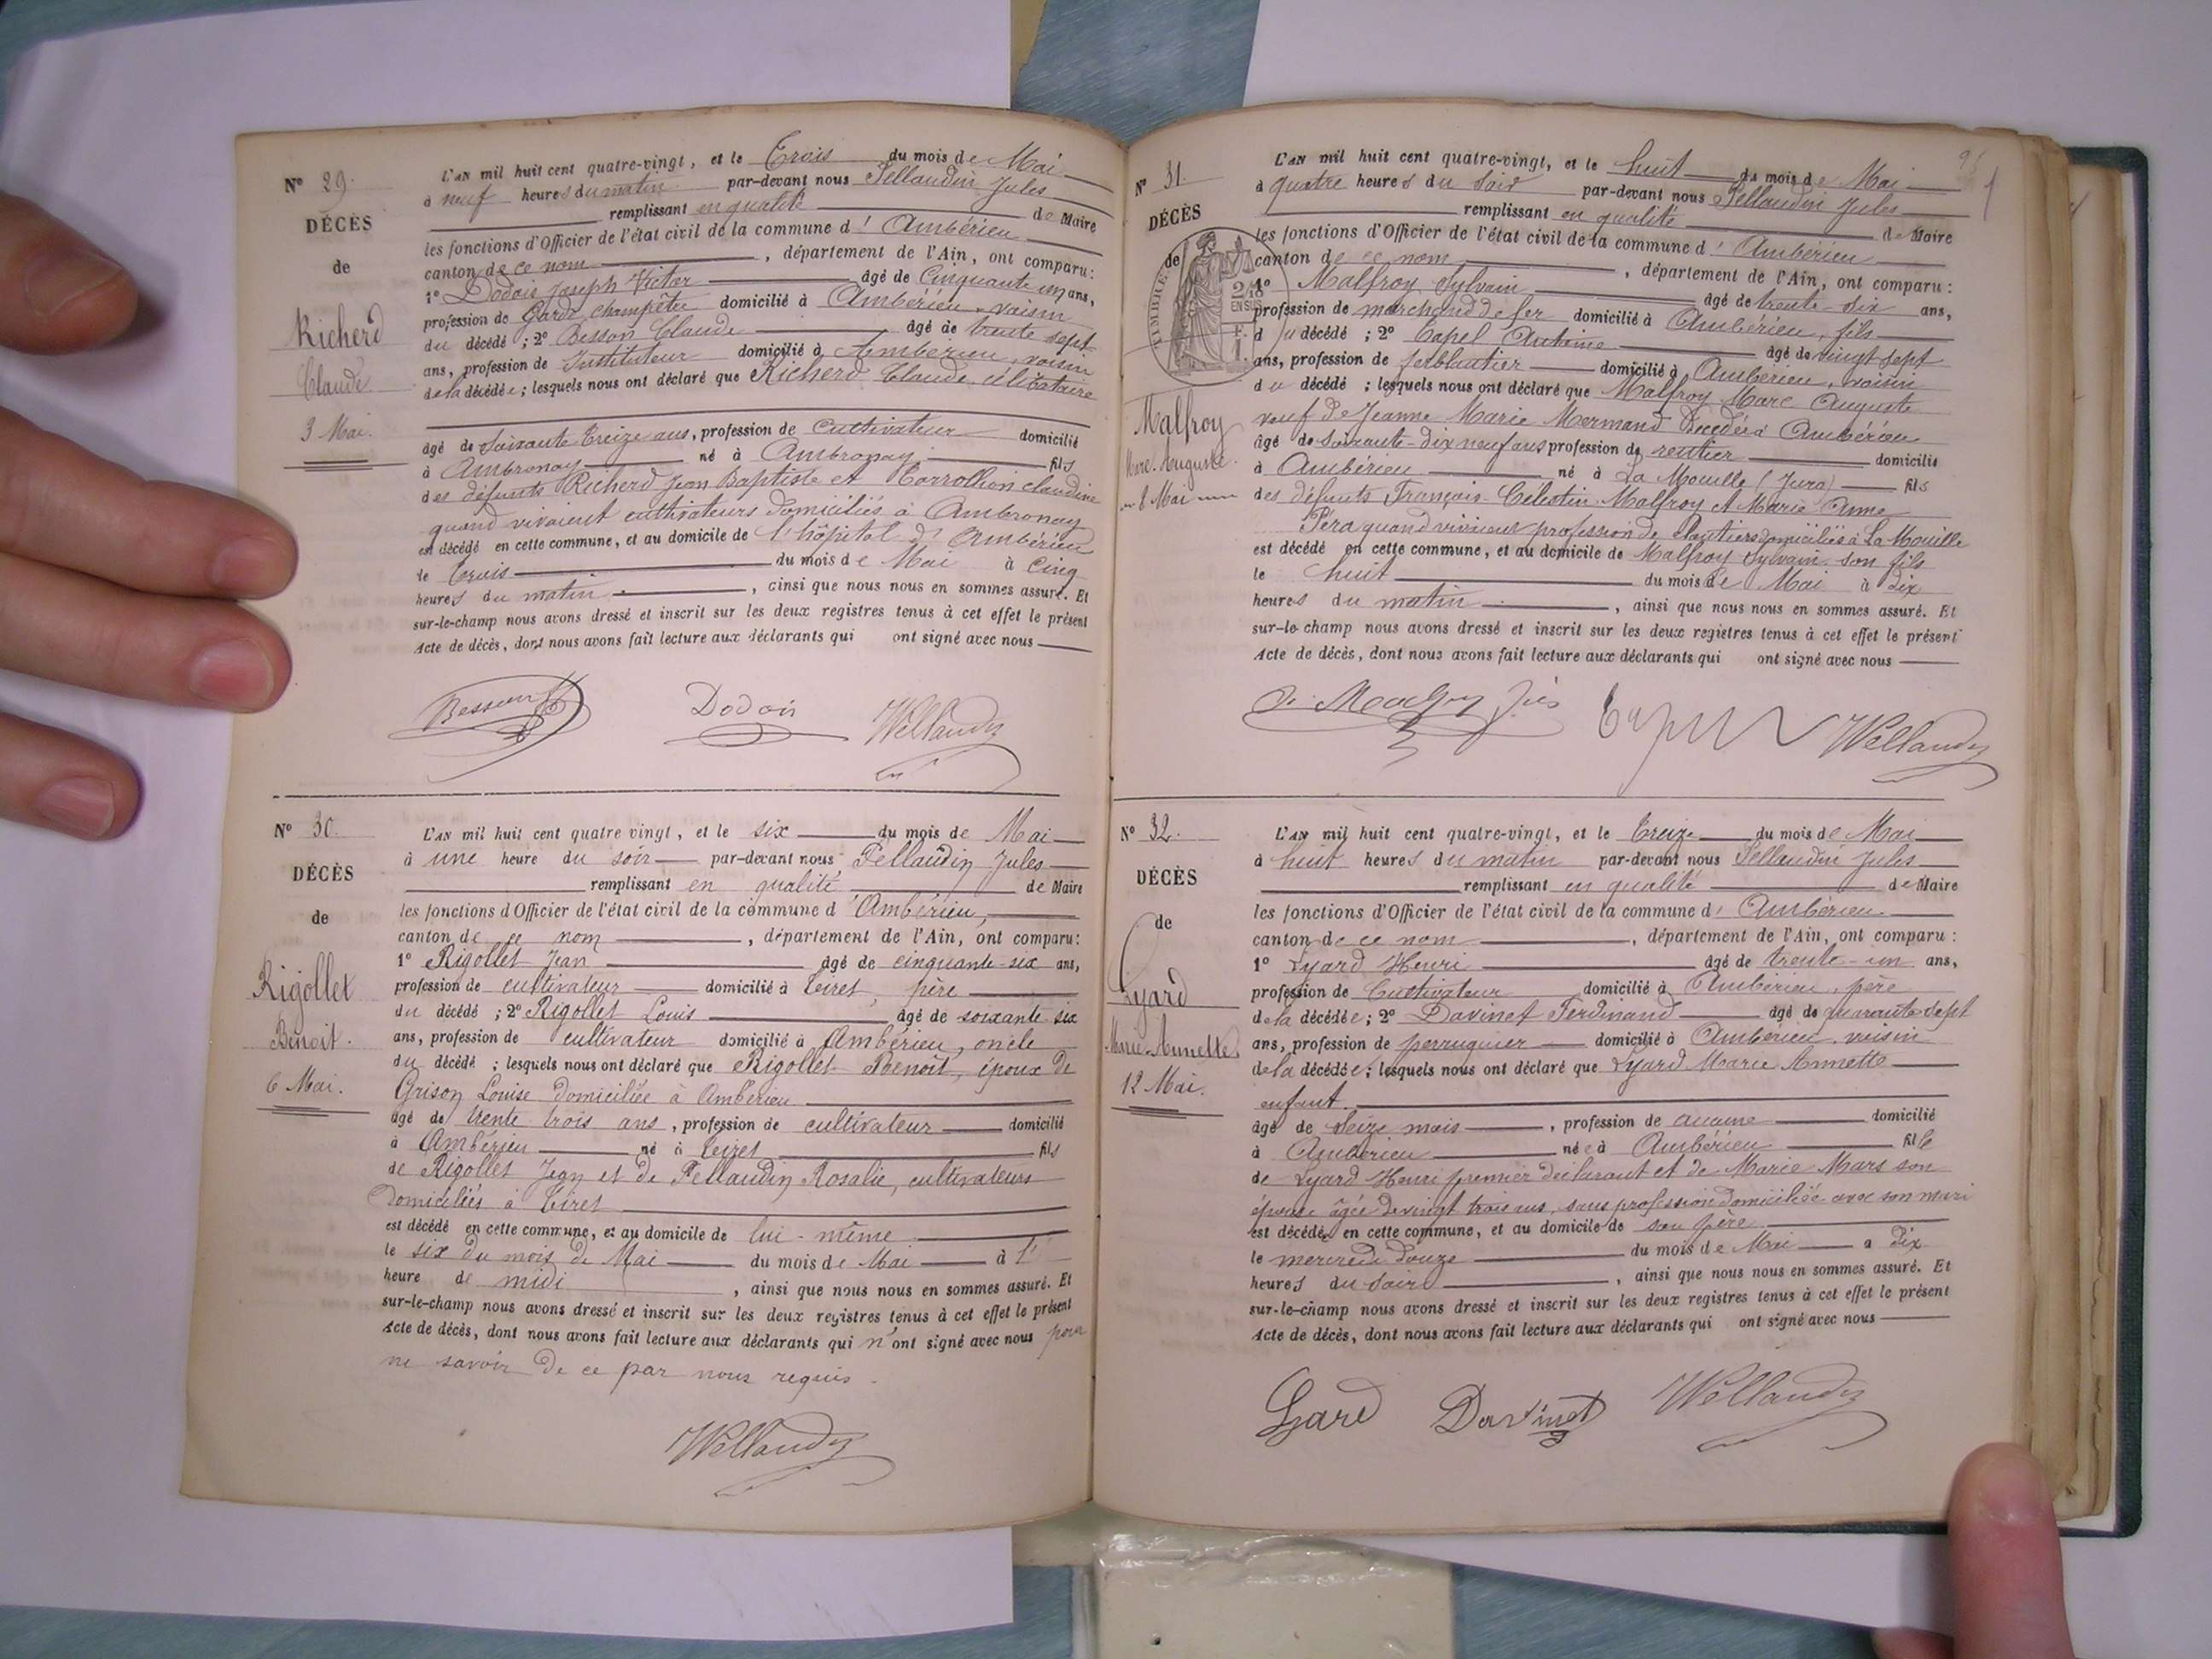 N° 29.
DÉCÈS
de
Richerd
Claude
3 Mai.
L'AN mil huit cent quatre-vingt, et le Trois du mois de Mai
à neuf heures du matin par-devant nous Pellaudin Jules
remplissant en qualité de Maire
les fonctions d'Officier de l'état civil de la commune d'Ambérieu
canton de ce nom, département de l'Ain, ont comparu:
1° Dodois Joseph Victor âgé de Cinquante un ans,
profession de Garde champêtre domicilié à Ambérieu, voisin
du décédé; 2° Besson Claude âgé de trente sept
ans, profession de Instituteur domicilié à Ambérieu, voisin
de la décédée; lesquels nous ont déclaré que Richerd Claude, célibataire
âgé de soixante treize ans, profession de Cultivateur domicilié
à Ambronay né à Ambronay fils
des défunts Richerd Jean Baptiste et Claudine
quand vivaient cultivateurs domiciliés à Ambronay
est décédé en cette commune, et au domicile de l'hôpital d'Ambérieu
le trois du mois de Mai à Cinq
heures du matin, ainsi que nous nous en sommes assuré. Et
sur-le-champ nous avons dressé et inscrit sur les deux registres tenus à cet effet le présent
Acte de décès, dont nous avons fait lecture aux déclarants qui ont signé avec nous
Besson Dodois Pellaudin
N° 30.
DÉCÈS
de
Rigollet
Benoit.
6 Mai.
L'AN mil huit cent quatre vingt, et le six du mois de Mai
à une heure du soir par-devant nous Pellaudin Jules
remplissant en qualité de Maire
les fonctions d'Officier de l'état civil de la commune d'Ambérieu,
canton de ce nom, département de l'Ain, ont comparu:
1° Rigollet Jean âgé de cinquante-six ans,
profession de cultivateur domicilié à Tiret, père
du décédé; 2° Rigollet Louis âgé de soixante six
ans, profession de cultivateur domicilié à Ambérieu, oncle
du décédé; lesquels nous ont déclaré que Rigollet Benoît, époux de
Grison Louise domiciliée à Ambérieu
âgé de trente trois ans, profession de cultivateur domicilié
à Ambérieu né à Tiret fils
de Rigollet Jean et de Pellaudin Rosalie, cultivateurs
domiciliés à Tiret
est décédé en cette commune, et au domicile de lui-même
le six du mois de Mai du mois de Mai à l'
heure de midi, ainsi que nous nous en sommes assuré. Et
sur-le-champ nous avons dressé et inscrit sur les deux registres tenus à cet effet le présent
Acte de décès, dont nous avons fait lecture aux déclarants qui n'ont signé avec nous pour
ne savoir de ce par nous requis.
Pellaudin
N° 31.
DÉCÈS
de
TIMBRE
2/10
EN SUS
Malfroy
Marc-Auguste.
8 Mai
L'AN mil huit cent quatre-vingt, et le huit du mois de Mai
à quatre heures du soir par-devant nous Pellaudin Jules
remplissant en qualité de Maire
les fonctions d'Officier de l'état civil de la commune d'Ambérieu
canton de ce nom, département de l'Ain, ont comparu:
1° Malfroy Sylvain âgé de trente-six ans,
profession de marchand de fer domicilié à Ambérieu, fils
du décédé; 2° Capel Antoine âgé de vingt sept
ans, profession de ferblantier domicilié à Ambérieu, voisin
du décédé; lesquels nous ont déclaré que Malfroy Marc Auguste
veuf de Jeanne Marie Mermand Décédée à Ambérieu
âgé de soixante-dix neuf ans profession de rentier domicilié
à Ambérieu né à La Mouille (Jura) fils
des défunts François-Célestin Malfroy et Marie Anne
Péra quand vivaient profession de Cloutiers domiciliés à La Mouille
est décédé en cette commune, et au domicile de Malfroy Sylvain son fils
le huit du mois de Mai à Dix
heures du matin, ainsi que nous nous en sommes assuré. Et
sur-le-champ nous avons dressé et inscrit sur les deux registres tenus à cet effet le présent
Acte de décès, dont nous avons fait lecture aux déclarants qui ont signé avec nous
Malfroy fils Capel Pellaudin
N° 32.
DÉCÈS
de
Lyard
Marie-Annette
12 Mai.
L'AN mil huit cent quatre-vingt, et le Treize du mois de Mai
à huit heures du matin par-devant nous Pellaudin Jules
remplissant en qualité de Maire
les fonctions d'Officier de l'état civil de la commune d'Ambérieu.
canton de ce nom, département de l'Ain, ont comparu:
1° Lyard Henri âgé de trente-un ans,
profession de Cultivateur domicilié à Ambérieu, père
de la décédée; 2° Davinet Ferdinand âgé de quarante sept
ans, profession de perruquier domicilié à Ambérieu voisin
de la décédée; lesquels nous ont déclaré que Lyard Marie Annette
enfant.
âgé de seize mois, profession de aucune domicilié
à Ambérieu née à Ambérieu fille
de Lyard Henri premier déclarant et de Marie Mars son
épouse âgée de vingt trois ans, sans profession domiciliée avec son mari
est décédée en cette commune, et au domicile de son père
le mercredi douze du mois de Mai à dix
heures du soir, ainsi que nous nous en sommes assuré. Et
sur-le-champ nous avons dressé et inscrit sur les deux registres tenus à cet effet le présent
Acte de décès, dont nous avons fait lecture aux déclarants qui ont signé avec nous
Lyard Davinet Pellaudin